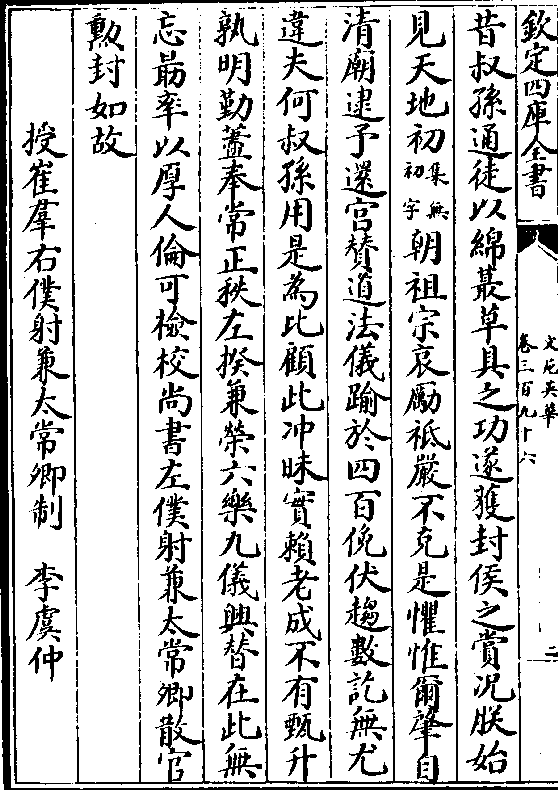 欽定四庫全書
文苑英華
卷三百九十六
二
昔叔孫通徒以綿蕞草具之功遂獲封侯之賞況朕始
見天地初集無初字朝祖宗哀勵祗嚴不克是懼惟爾肇自
清廟逮予還宫賛道法儀踰於四百俛伏趨數訖無尤
違夫何叔孫用是為比顧此冲昧實賴老成不有甄升
孰明勤蓋奉常正秩左揆兼榮六樂九儀興替在此無
忘勗率以厚人倫可檢校尚書左僕射兼太常卿散官
勲封如故
授崔羣右僕射兼太常卿制　李虞仲